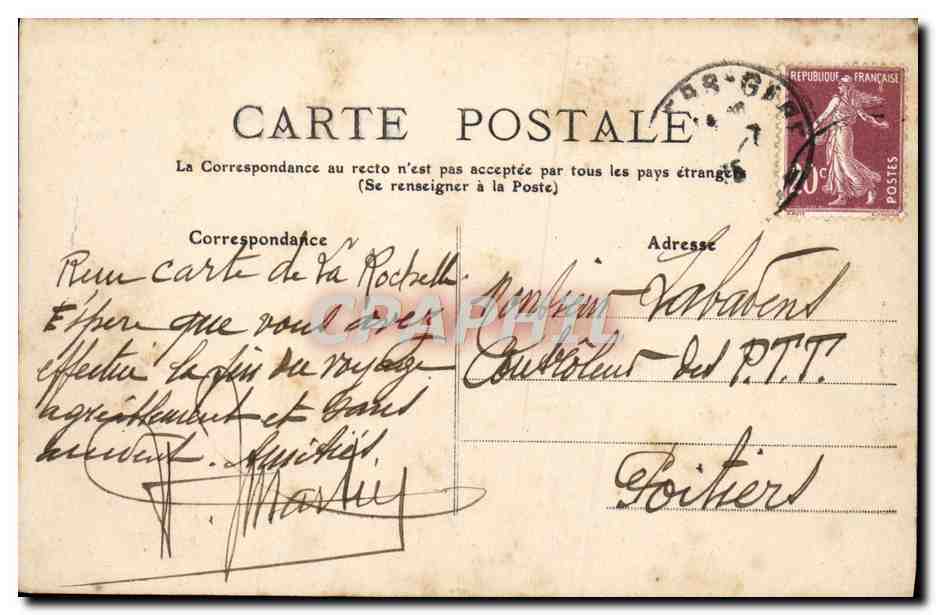 CARTE POSTALE
La Correspondance au recto n'est pas acceptée par tous les pays étrangers
(Se renseigner à la Poste.)
RÉPUBLIQUE FRANÇAISE
20c
POSTES
GERS
Correspondance
Reçu carte de La Rochelle
Espère que vous avez
effectué la fin du voyage
agréablement et sans
accident. Amitiés
Martin
Adresse
Monsieur Labadens
Contrôleur des P.T.T.
Poitiers
CPAPHIL